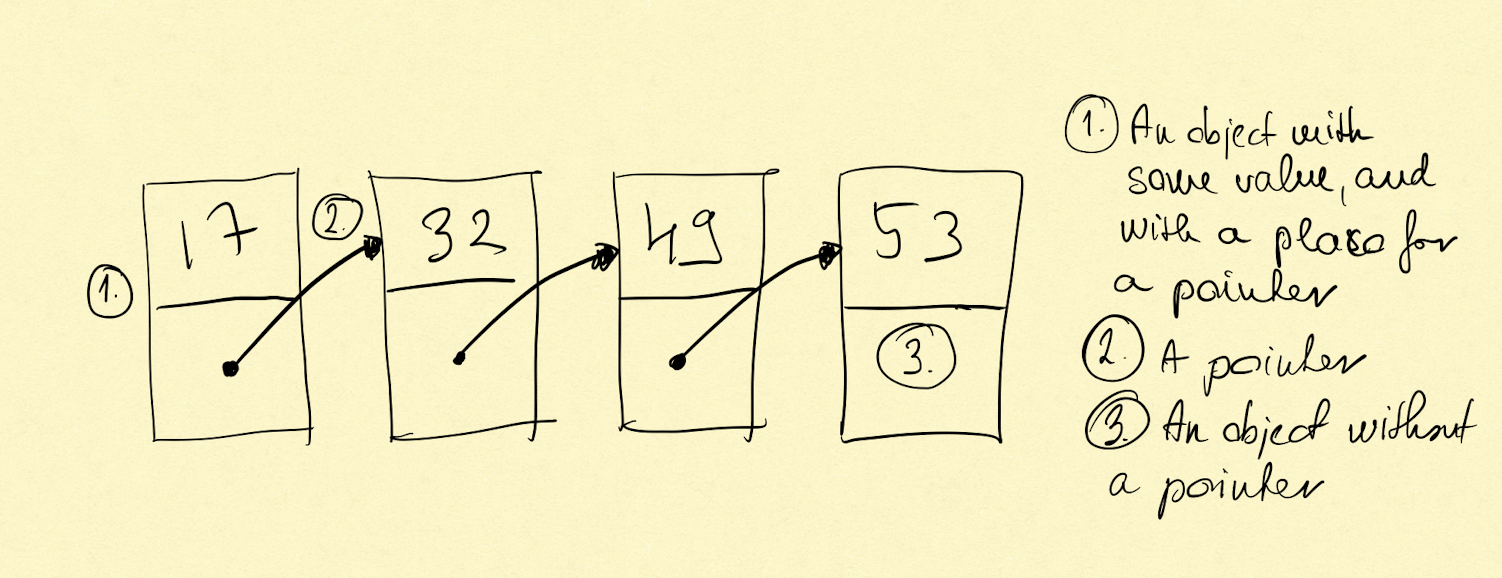 17 2. 32 49 53
1. 3.
1. An object with
some value, and
with a place for
a pointer
2. A pointer
3. An object without
a pointer